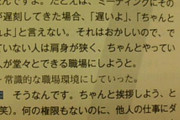 んですよ。ミーティングにその
遅刻してきた場合、「遅いよ」、「ちゃんと
よ」と言えない。それはおかしいので、で
ていない人は肩身が狭く、ちゃんとやってい
人が堂々とできる職場にしようと
常識的な職場環境にしていった。
そうなんです。ちゃんと挨拶しよう、と
笑)。何の権限もないのに、他人の仕事にダ